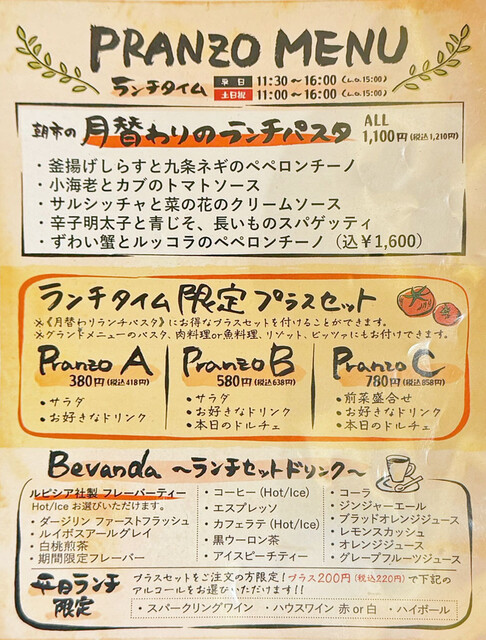 PRANZO MENU
ランチタイム 平日 11:30〜16:00 (L.O.15:00)
土日祝 11:00〜16:00 (L.O.15:00)
朝市の月替わりのランチパスタ ALL 1,100円(税込1,210円)
・釜揚げしらすと九条ネギのペペロンチーノ
・小海老とカブのトマトソース
・サルシッチャと菜の花のクリームソース
・辛子明太子と青じそ、長いものスパゲッティ
・ずわい蟹とルッコラのペペロンチーノ（込￥1,600）
ランチタイム限定プラスセット
※《月替わりランチパスタ》にお得なプラスセットを付けることができます。
※グランドメニューのパスタ、肉料理or魚料理、リゾット、ピッツァにもお付けできます。
Pranzo A
380円(税込418円)
・サラダ
・お好きなドリンク
Pranzo B
580円(税込638円)
・サラダ
・お好きなドリンク
・本日のドルチェ
Pranzo C
780円(税込858円)
・前菜盛合せ
・お好きなドリンク
・本日のドルチェ
Bevanda 〜ランチセットドリンク〜
ルピシア社製 フレーバーティー
Hot/Ice お選びいただけます。
・ダージリン ファーストフラッシュ
・ルイボスアールグレイ
・白桃煎茶
・期間限定フレーバー
・コーヒー (Hot/Ice)
・エスプレッソ
・カフェラテ (Hot/Ice)
・黒ウーロン茶
・アイスピーチティー
・コーラ
・ジンジャーエール
・ブラッドオレンジジュース
・レモンスカッシュ
・オレンジジュース
・グレープフルーツジュース
平日ランチ限定
プラスセットをご注文の方限定！プラス200円(税込220円)で下記の
アルコールをお選びいただけます！！
・スパークリングワイン ・ハウスワイン 赤 or 白 ・ハイボール